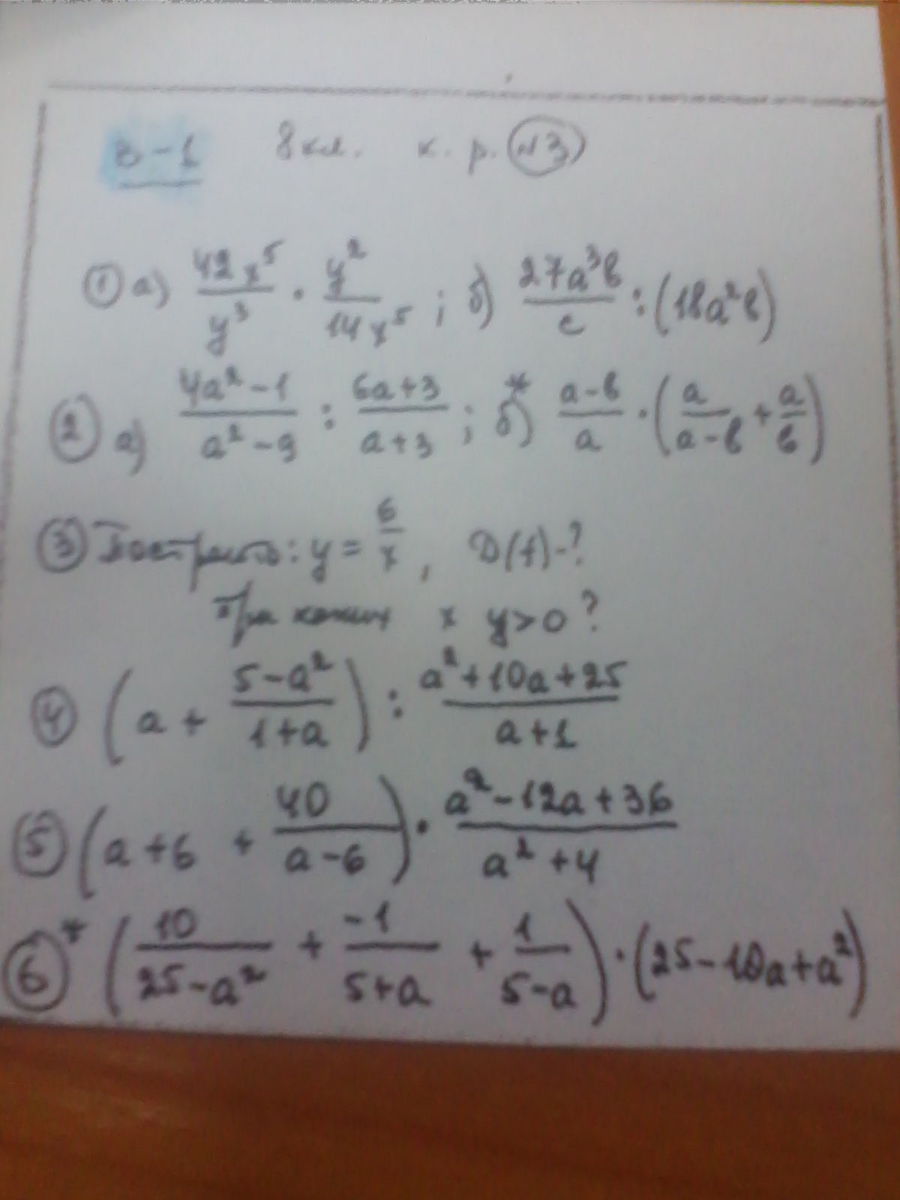 В-1 8 кл. к. р. №3
① а) 42x⁵/y³ · y²/14x⁵ ; б) 27a³b/c : (18a²b)
② а) (4a²-1)/(a²-9) : (6a+3)/(a+3) ; б)* (a-b)/a · (a/(a-b) + a/b)
③ Построить: y = 6/x , D(f)-?
При каких x y>0 ?
④ (a + (5-a²)/(1+a)) : (a²+10a+25)/(a+1)
⑤ (a+6 + 40/(a-6)) · (a²-12a+36)/(a²+4)
⑥* (10/(25-a²) + -1/(5+a) + 1/(5-a)) · (25-10a+a²)